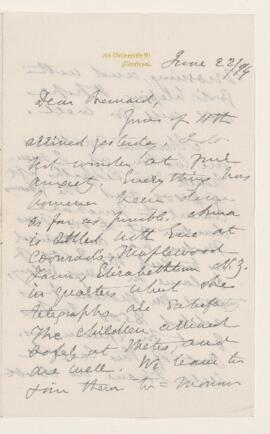 Montreal.
June 22/94
Dear Bernard,
Yours of 18th
arrived yesterday. I do
not wonder at your
anxiety. Everything has
however been done
as far as possible. Anna
is settled with Eva at
Coonrad's, Maplewood
Farm, Elizabethtown N.Y.
in quarters what she
telegraphs are satisfactory
The children arrived
safely at Metis and
are well. We leave to
join them to-morrow